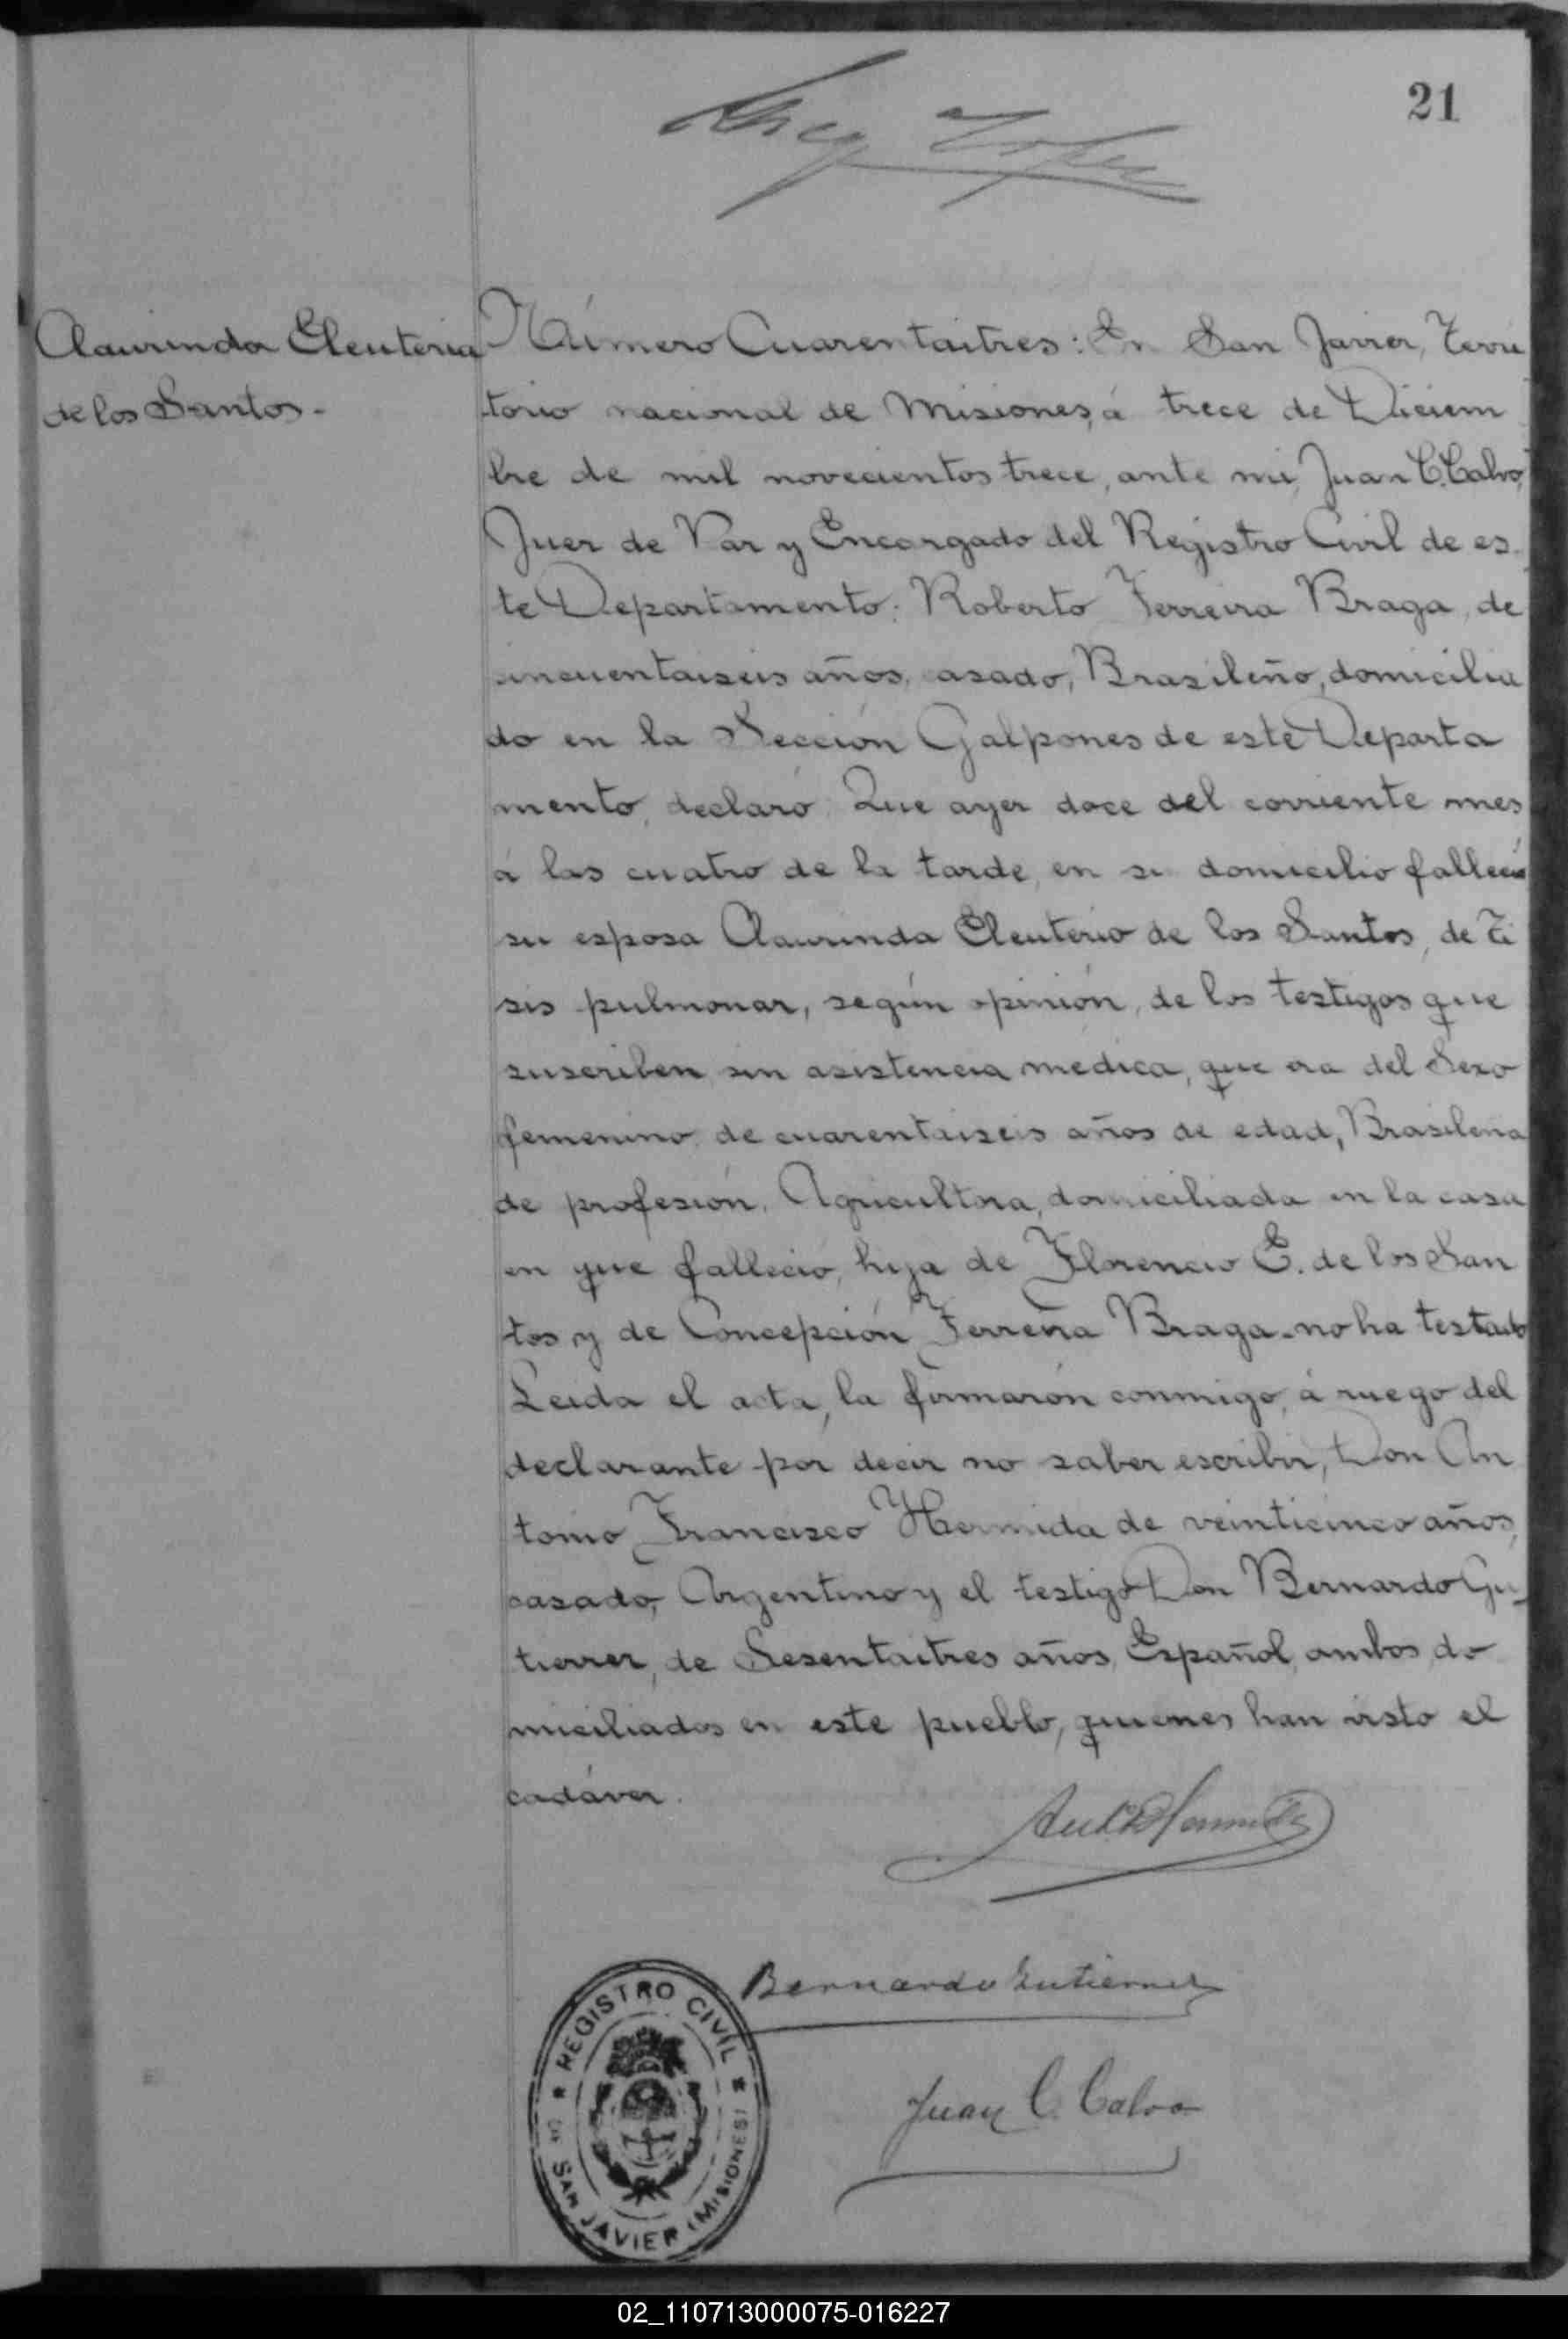 21
Claurinda Eleuteria
de los Santos.-
Número Cuarentaitres: En San Javier, Terri
torio nacional de Misiones, á trece de Diciem
bre de mil novecientos trece, ante mi, Juan C. Calvo,
Juez de Paz y Encargado del Registro Civil de es-
te Departamento: Roberto Ferreira Braga, de
cincuentaiseis años, casado, Brasileño, domicilia
do en la Sección Galpones de este Departa
mento, declaró: Que ayer doce del corriente mes
á las cuatro de la tarde, en su domicilio falleció
su esposa Claurinda Eleuterio de los Santos, de Ti
sis pulmonar, según opinión, de los testigos que
suscriben sin asistencia médica, que era del Sexo
femenino, de cuarentaiseis años de edad, Brasileña
de profesión, Agricultora, domiciliada en la casa
en que falleció, hija de Florencio E. de los San
tos y de Concepción Ferreira Braga - no ha testado
Leida el acta, la firmarón conmigo, á ruego del
declarante por decir no saber escribir, Don An
tonio Francisco Hermida de veinticinco años,
casado, Argentino y el testigo Don Bernardo Gu-
tierrez, de Sesentaitres años, Español, ambos do
miciliados en este pueblo, quienes han visto el
cadáver.
Bernardo Gutierrez
Juan C. Calvo
* REGISTRO CIVIL *
DE SAN JAVIER (MISIONES)
02_110713000075-016227